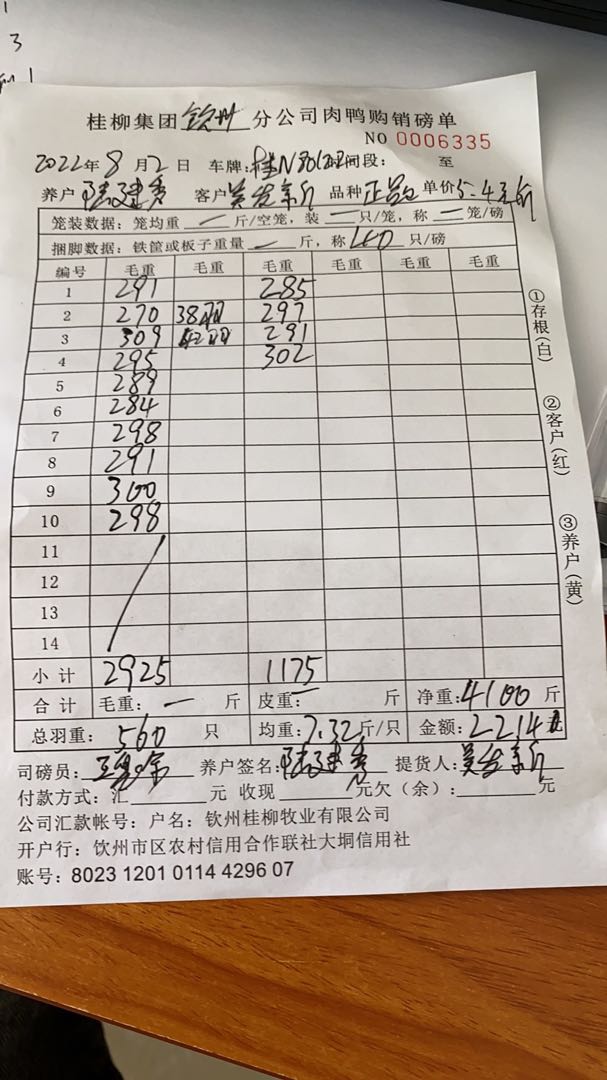 3
桂柳集团 钦州 分公司肉鸭购销磅单
NO 0006335
2022年 8 月 2 日 车牌: 时间段: 至
养户 客户 品种 正品 单价 5.4元/斤
笼装数据: 笼均重 一 斤/空笼, 装 一 只/笼, 称 一 笼/磅
捆脚数据: 铁筐或板子重量 一 斤, 称 40 只/磅
编号 毛重 毛重 毛重 毛重 毛重 毛重
1 291 285
2 270 38羽 297
3 309 42羽 291
4 295 302
5 289
6 284
7 298
8 291
9 300
10 298
11
12
13
14
小计 2925 1175
合计 毛重: 一 斤 皮重: 一 斤 净重: 4100 斤
总羽重: 560 只 均重: 7.32 斤/只 金额: 22140
司磅员: 养户签名: 提货人:
付款方式: 汇 元 收现 元 欠(余): 元
公司汇款帐号: 户名: 钦州桂柳牧业有限公司
开户行: 钦州市区农村信用合作联社大垌信用社
账号: 8023 1201 0114 4296 07
①存根(白)
②客户(红)
③养户(黄)